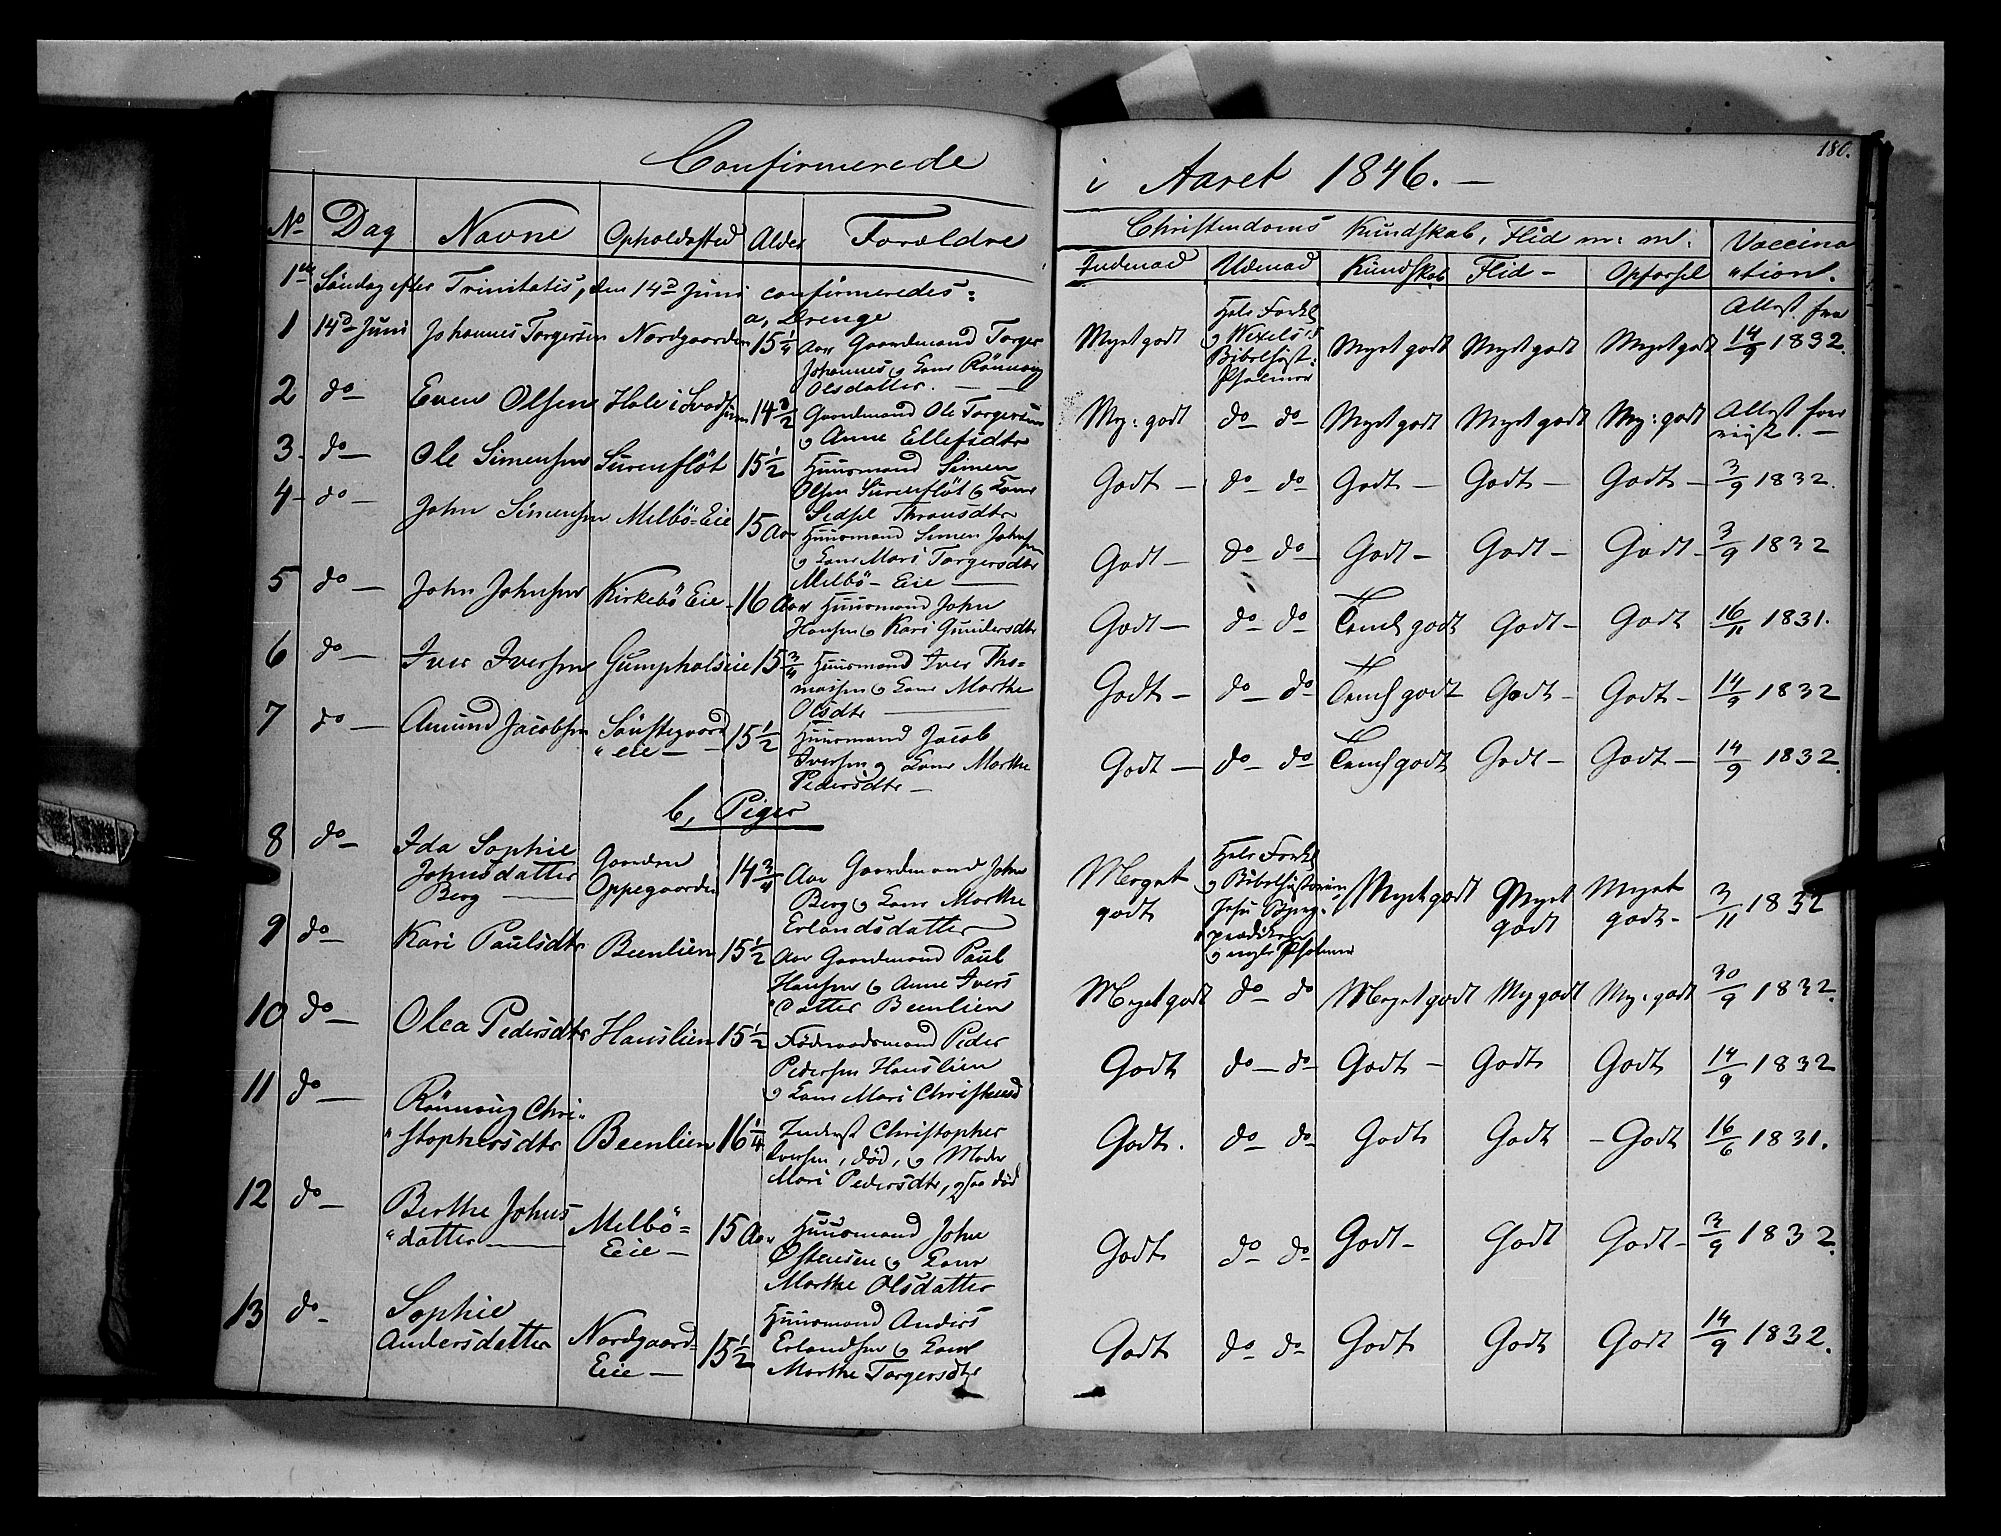 Confirmerede
i Aaret 1846. —
180.
No Dag Navne Opholdssted Alder Forældre
Christendoms Kundskab, Flid m: m:
Indenad Udenad Kundskab Flid - Opførsel
Vaccina
"tion.
1ste Søndag efter Trinitatis, den 14de Juni confirmeredes:
a, Drenge
1 14de Juni Johannes Torgersen Nordgaarden 15 1/4 Aar Gaardmand Torger
Johannes og Kone Rönnoug
Olsdatter. —
Myet godt
Hele Forkl
og Wexels's
Bibelhist:
Psalmer
Myet godt Myet godt Myet godt
Attest fra
14/9 1832.
2 do — Even Olsen Hole i Svads 14 1/2 Gaardmand Ole Torgersen
og Anne Ellefsdtr
My: godt do do Myet godt Myet godt My: godt Attest fore
viist. —
3. do — Ole Simensen Surenflöt 15 1/2 Huusmand Simen
Olsen Surenflöt og Kone
Sidsel Thronsdtr
Godt — do do Godt — Godt — Godt — 3/9 1832.
4 — do — John Simensen Melbö-Eie 15 Aar Huusmand Simen Johnsen
og Kone Mari Torgersdtr
Melbö — Eie —
Godt — do do Godt — Godt — Godt — 3/9 1832
5 do — John Johnsen Kirkebö Eie — 16 Aar Huusmand John
Hansen og Kari Gundersdtr
Godt — do do Temel godt Godt — Godt 16/11 1831.
6 do — Iver Iversen Gumpholseie 15 3/4 Huusmand Iver Tho-
massen og Kone Marthe
Olsdtr —
Godt — do do Temel godt Godt — Godt — 14/9 1832
7 do — Amund Jacobsen Sönstegaard
" eie — 15 1/2 Huusmand Jacob
Iversen og Kone Marthe
Pedersdtr —
Godt — do do Temel godt Godt — Godt — 14/9 1832.
b, Piger
8 do — Ida Sophie
Johnsdatter
Berg —
Gaarden
Oppegaarden 14 3/4 Aar Gaardmand John
Berg og Kone Marthe
Erlandsdatter
Meget
godt
Hele Forkl
og Bibelhistorien
Jesu Bjerg-
"prædiken
og nogle Psalmer
Myet godt Myet
godt Myet
godt — 3/11 1832
9 do — Kari Paulsdtr Beenlien 15 1/2 Aar Gaardmand Paul
Hansen og Anne Ivers
"datter Beenlien
Meget godt do do Meget godt My godt My: godt 30/9 1832.
10 do — Olea Pedersdtr Hauslien 15 1/2 Föderaadsmand Peder
Pedersen Hauslien
og Kone Mari Christensd
Godt do — do Godt — Godt Godt 14/9 1832
11 do — Rönnoug Chri-
"stophersdtr Beenlien 16 1/4 Inderst Christopher
Iversen, död, og Moder
Mari Pedersdtr, ogsaa död
Godt. do do Godt Godt — Godt 16/6 1831.
12 do — Berthe Johns
"datter — Melbö=
Eie — 15 Aar Huusmand John
Östensen og Kone
Marthe Olsdatter
Godt do do Godt — Godt Godt — 3/9 1832.
13 do — Sophie
Andersdatter Nordgaard=
Eie — 15 1/2 Huusmand Anders
Erlandsen og Kone
Marthe Torgersdtr
Godt do do Godt Godt Godt 14/9 1832.